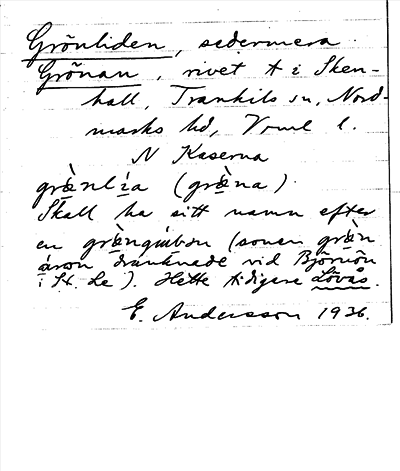 Grönliden, sedermera
Grönan, rivet t i Sken-
hall, Trankils sn, Nord-
marks hd, Vrml l.
N Kaserna
græ̀nlía (græ̀na).
Skall ha sitt namn efter
en græ̀ngúbbən (sonen græ̀n
drunknade vid Björnön
i St. Le). Hette tidigare Lövås.
E. Andersson 1936.